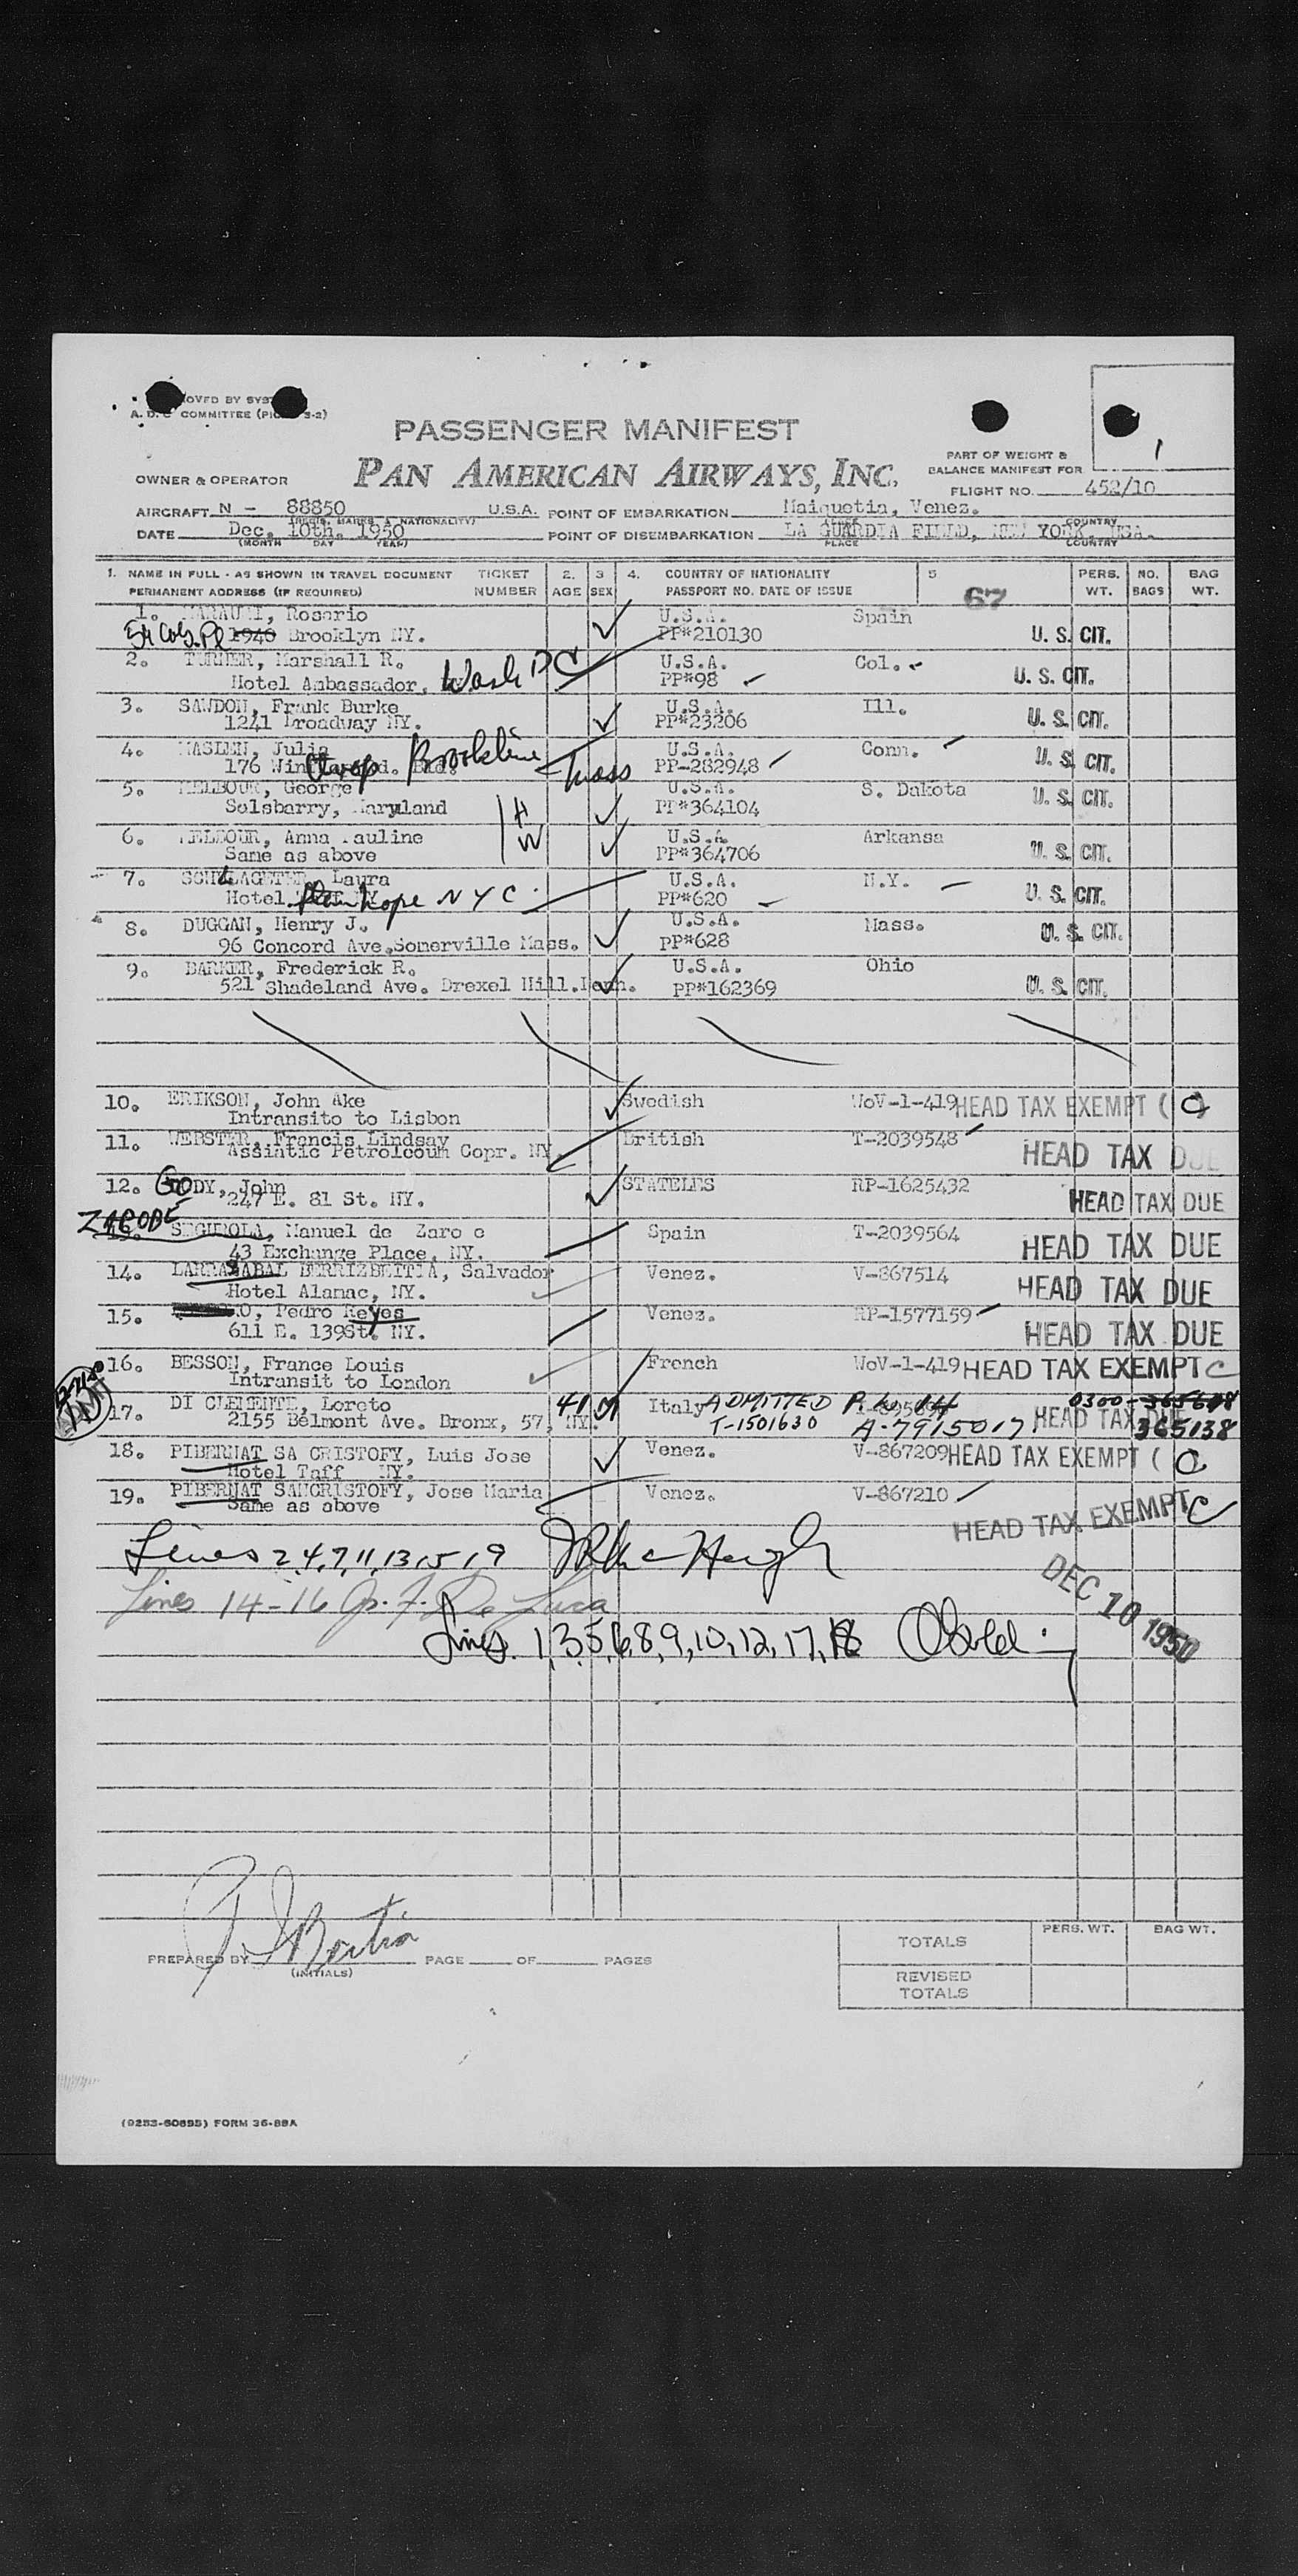 A. D. C COMMITTEE
PASSENGER MANIFEST
PAN AMERICAN AIRWAYS, INC.
OWNER & OPERATOR
PART OF WEIGHT &
BALANCE MANIFEST FOR
FLIGHT NO. 452/10
AIRCRAFT N - 88850 U.S.A. POINT OF EMBARKATION Maiquetia, Venez.
DATE Dec. 10th. 1950 POINT OF DISEMBARKATION LA GUARDIA FIELD, NEW YORK, USA.
(MONTH DAY YEAR) PLACE COUNTRY
1. NAME IN FULL - AS SHOWN IN TRAVEL DOCUMENT TICKET 2. 3 4. COUNTRY OF NATIONALITY 5 PERS. NO. BAG
PERMANENT ADDRESS (IF REQUIRED) NUMBER AGE SEX PASSPORT NO. DATE OF ISSUE 67 WT. BAGS WT.
1. Rosario U.S.A. Spain
1940 Brooklyn NY. PP#210130 U. S. CIT.
2. TURNER, Marshall R. U.S.A. Col.
Hotel Ambassador, Wash DC PP#98 U. S. CIT.
3. SAWDON, Frank Burke U.S.A. Ill.
1241 Broadway NY. PP#23206 U. S. CIT.
4. MASLEN, Julia Brookline U.S.A. Conn.
176 Mass PP-282948 U. S. CIT.
5. George U.S.A. S. Dakota
Solsbarry, Maryland H PP#364104 U. S. CIT.
6. Anna Pauline W U.S.A. Arkansa
Same as above PP#364706 U. S. CIT.
7. Laura U.S.A. N.Y.
Hotel NYC PP#620 U. S. CIT.
8. DUGGAN, Henry J. U.S.A. Mass.
96 Concord Ave. Somerville Mass. PP#628 U. S. CIT.
9. BARKER, Frederick R. U.S.A. Ohio
521 Shadeland Ave. Drexel Hill. Penn. PP#162369 U. S. CIT.
10. ERIKSON, John Ake Swedish WoV-1-419 HEAD TAX EXEMPT ( C
Intransito to Lisbon
11. WEBSTER, Francis Lindsay British T-2039548 HEAD TAX DUE
Assiatic Petrolcoum Copr. NY.
12. GODY, John STATELES RP-1625432 HEAD TAX DUE
247 E. 81 St. NY.
ZARODE
13. SEGIROLA, Manuel de Zaro e Spain T-2039564 HEAD TAX DUE
43 Exchange Place, NY.
14. LARRAZABAL BERRIZBEITIA, Salvador Venez. V-867514 HEAD TAX DUE
Hotel Alamac, NY.
15. Pedro Reyes Venez. RP-1577159 HEAD TAX DUE
611 E. 139St. NY.
16. BESSON, France Louis French WoV-1-419 HEAD TAX EXEMPT C
Intransit to London
17. DI CLEMENTE, Loreto 41 M Italy ADMITTED 0300-365608
2155 Belmont Ave. Bronx, 57, NY. T-1501630 A-7915017 HEAD TAX DUE 365138
18. PIBERNAT SA CRISTOFY, Luis Jose Venez. V-867209 HEAD TAX EXEMPT ( C
Hotel Taff NY.
19. PIBERNAT SANCRISTOFY, Jose Maria Venez. V-867210
Same as above HEAD TAX EXEMPT C
Lines 2,4,7,11,13,15,19
DEC 10 1950
Lines 14-16
Lines 1,3,5,6,8,9,10,12,17,18
PREPARED BY PAGE OF PAGES
(INITIALS)
PERS. WT. BAG WT.
TOTALS
REVISED
TOTALS
(9253-60895) FORM 36-88A